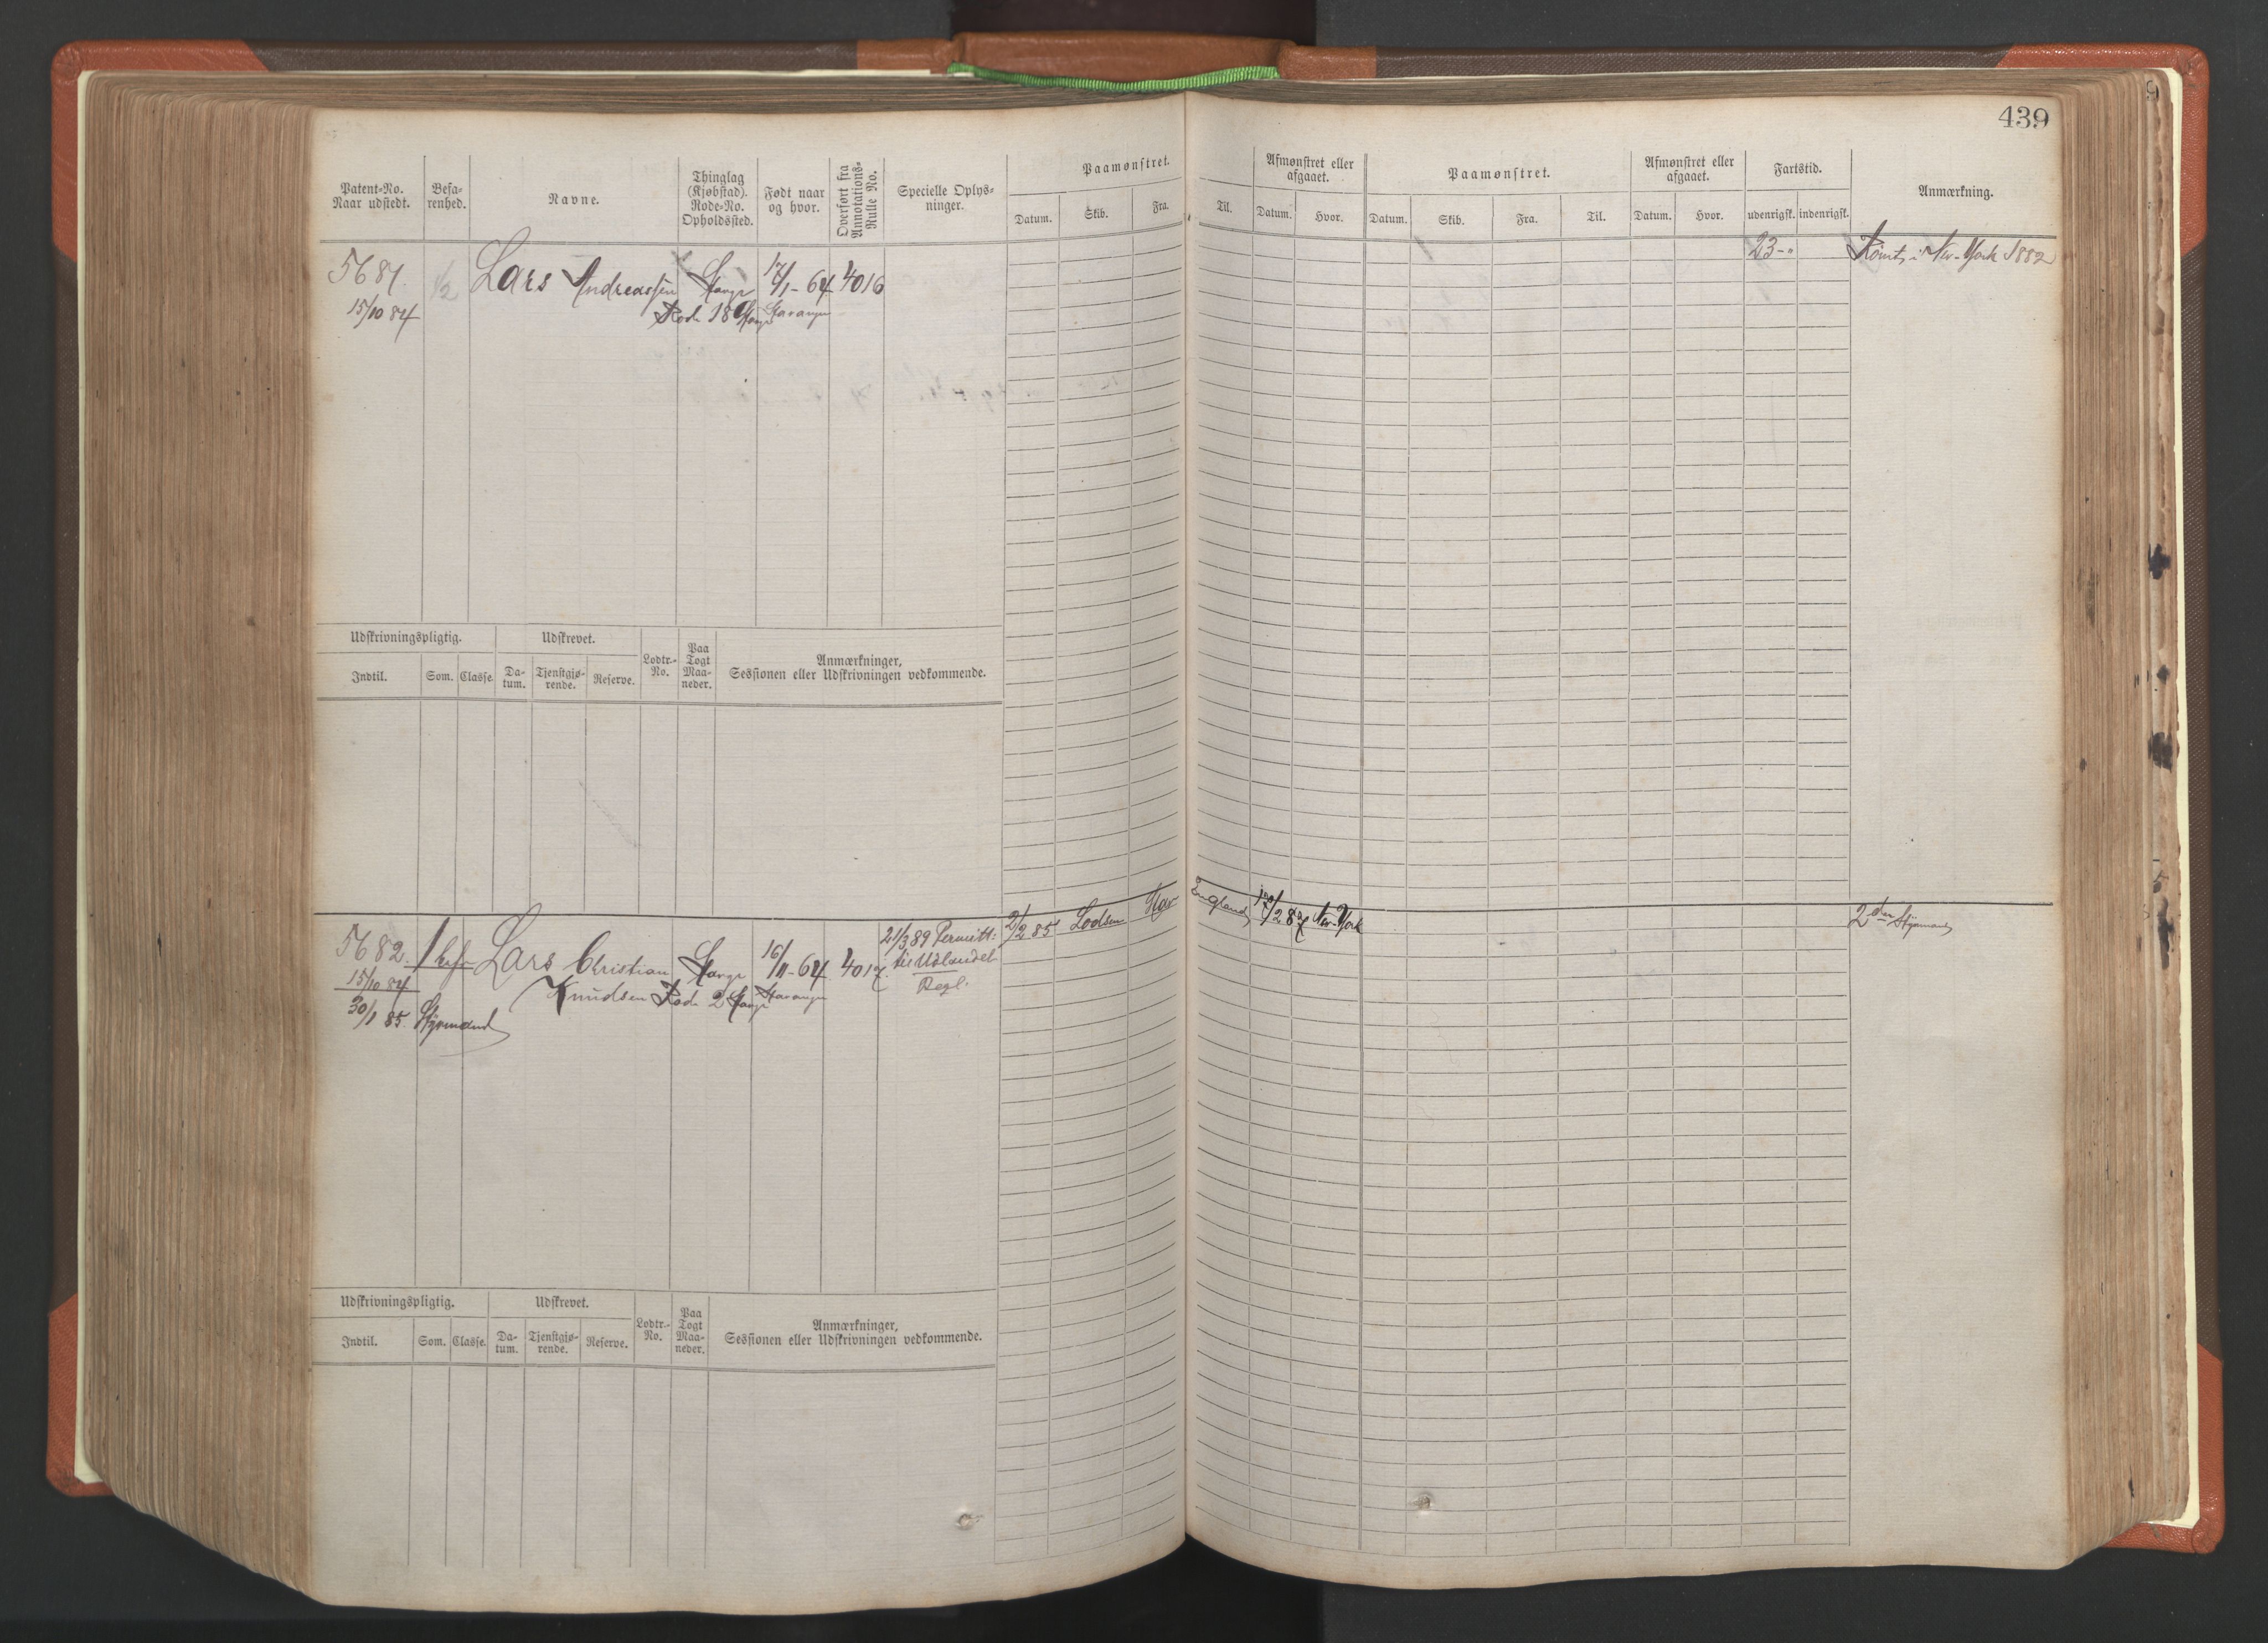 439
Patent-No.
Naar udstedt.
Befa-
renhed.
Navne.
Thinglag
(Kjøbstad).
Rode-No.
Opholdssted.
Født naar
og hvor.
Overført fra
Annotations-
Rulle No.
Specielle Oplys-
ninger.
Paamønstret.
Datum. Skib. Fra. Til.
Afmønstret eller
afgaaet.
Datum. Hvor.
Paamønstret.
Datum. Skib. Fra. Til.
Afmønstret eller
afgaaet.
Datum. Hvor.
Fartstid.
udenrigsk. indenrigsk.
Anmærkning.
5681 1/2 Lars Andreassen Stavgr 17/1-64 4016
15/10 84 Rode 18 Stavgr Stavanger
23-" Rømt i New-York 1882
Udskrivningspligtig. Udskrevet.
Lodtr.-
No.
Paa
Togt
Maa-
neder.
Anmærkninger,
Sessionen eller Udskrivningen vedkommende.
Indtil. Som. Classe.
Da-
tum.
Tjenstgjø-
rende.
Reserve.
5682. 1 Lars Christian Stavgr 16/11-64 4017.
15/10 84 Knudsen Rode 2 Stavgr Stavanger
30/1 85. Styrmand
21/3 89 Permitt:
til Udlandet
Regl.
2/2 85 Lodsen Stgr England 7/2 87 New-York
2den Styrmand
Udskrivningspligtig. Udskrevet.
Lodtr.-
No.
Paa
Togt
Maa-
neder.
Anmærkninger,
Sessionen eller Udskrivningen vedkommende.
Indtil. Som. Classe.
Da-
tum.
Tjenstgjø-
rende.
Reserve.